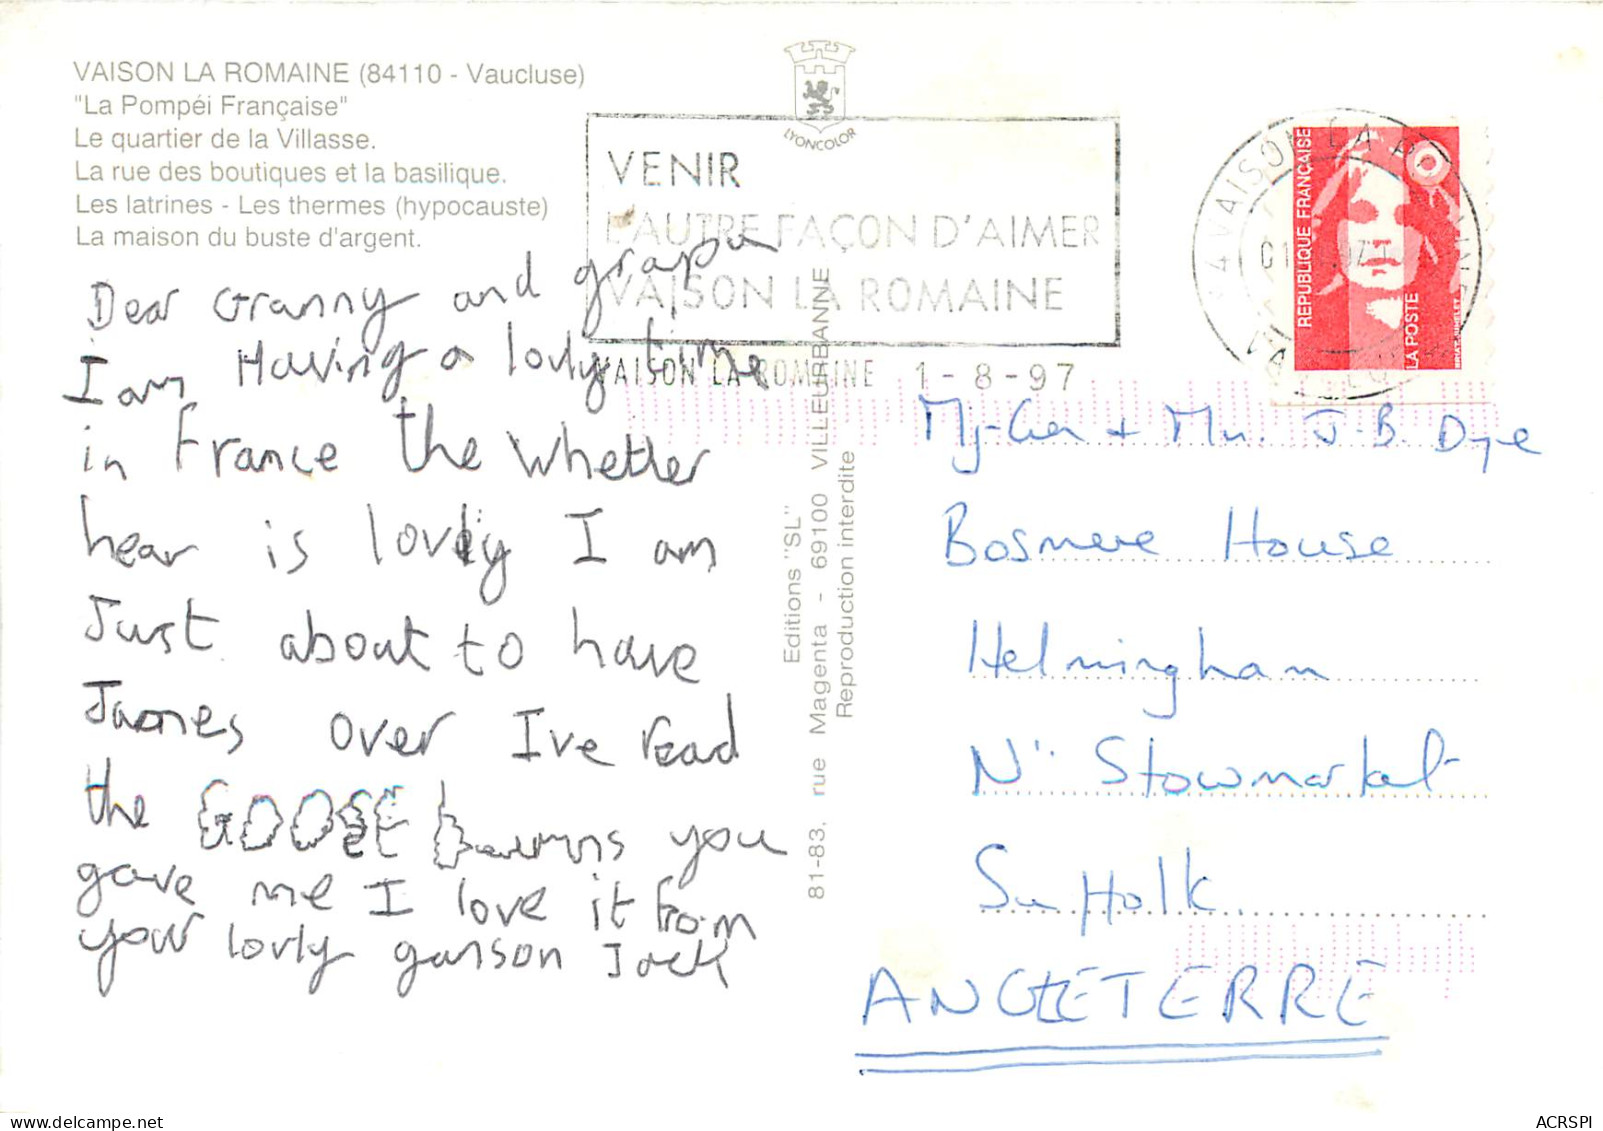 VAISON LA ROMAINE (84110 - Vaucluse)
"La Pompéi Française"
Le quartier de la Villasse.
La rue des boutiques et la basilique.
Les latrines - Les thermes (hypocauste)
La maison du buste d'argent.
LYONCOLOR
VENIR
L'AUTRE FAÇON D'AIMER
VAISON LA ROMAINE
VAISON LA ROMAINE 1-8-97
84 VAISON LA ROMAINE
VAUCLUSE
REPUBLIQUE FRANÇAISE
LA POSTE
Dear Granny and grapa
I am Having a lovly time
in France the Whether
hear is lovly I am
Just about to have
James over I've read
the GOOSE bumms you
gave me I love it from
your lovly ganson Jack
Editions "SL"
81-83, rue Magenta - 69100 VILLEURBANNE
Reproduction interdite
+ Mrs. J.B. Dye
Bosmere House
Helmingham
Nr. Stowmarket
Suffolk.
ANGLETERRE
ACRSPI